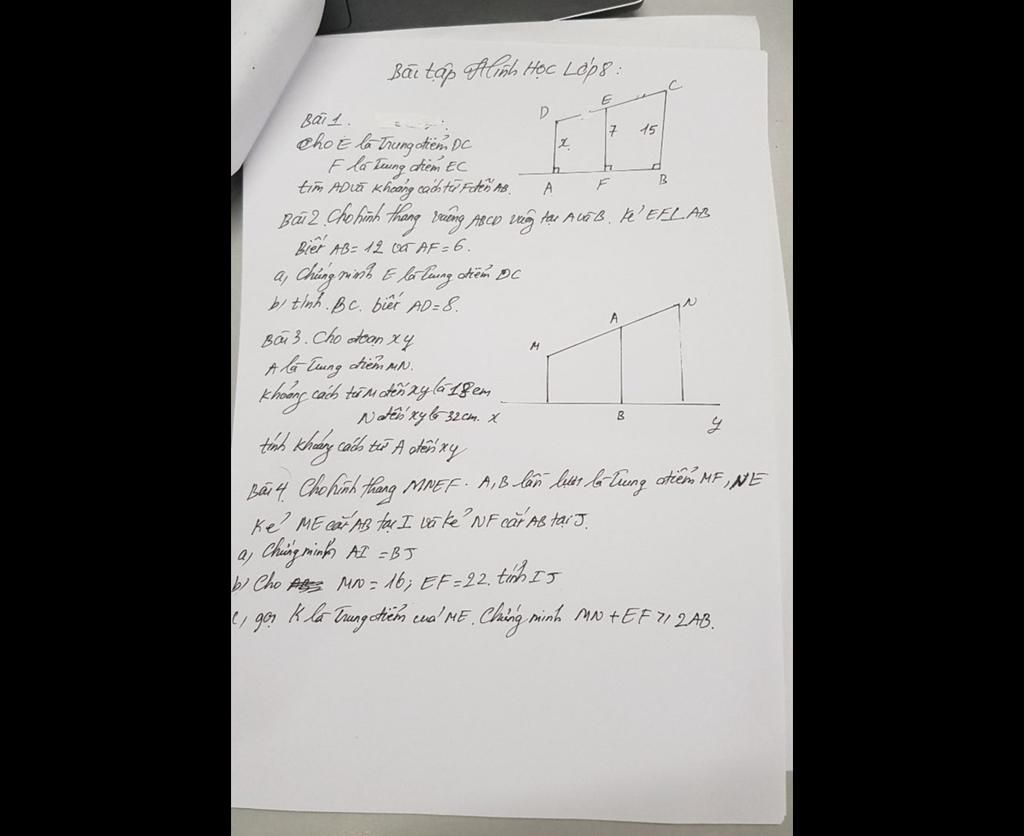 Bài tập Hình Học Lớp 8:
Bài 1.
Cho E là Trung điểm DC
F là Trung điểm EC
tìm AD và khoảng cách từ F đến AB.
D E C
x 7 15
A F B
Bài 2. Cho hình thang vuông ABCD vuông tại A và B. kẻ EF⊥AB
Biết AB = 12 và AF = 6.
a, Chứng minh E là Trung điểm DC
b, tính BC biết AD = 8.
Bài 3. Cho đoạn xy
A là Trung điểm MN.
khoảng cách từ M đến xy là 18cm
N đến xy là 32cm.
tính khoảng cách từ A đến xy
M A N
x B y
Bài 4. Cho hình thang MNEF. A, B lần lượt là Trung điểm MF, NE
Kẻ ME cắt AB tại I và kẻ NF cắt AB tại J.
a, Chứng minh AI = BJ
b, Cho MN = 16; EF = 22. tính IJ
c, gọi K là Trung điểm của ME. Chứng minh MN + EF ≥ 2AB.